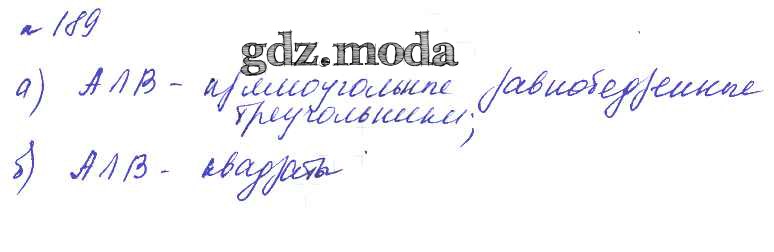 № 189
gdz.moda
а) A ∩ B - прямоугольные равнобедренные
треугольники;
б) A ∩ B - квадраты